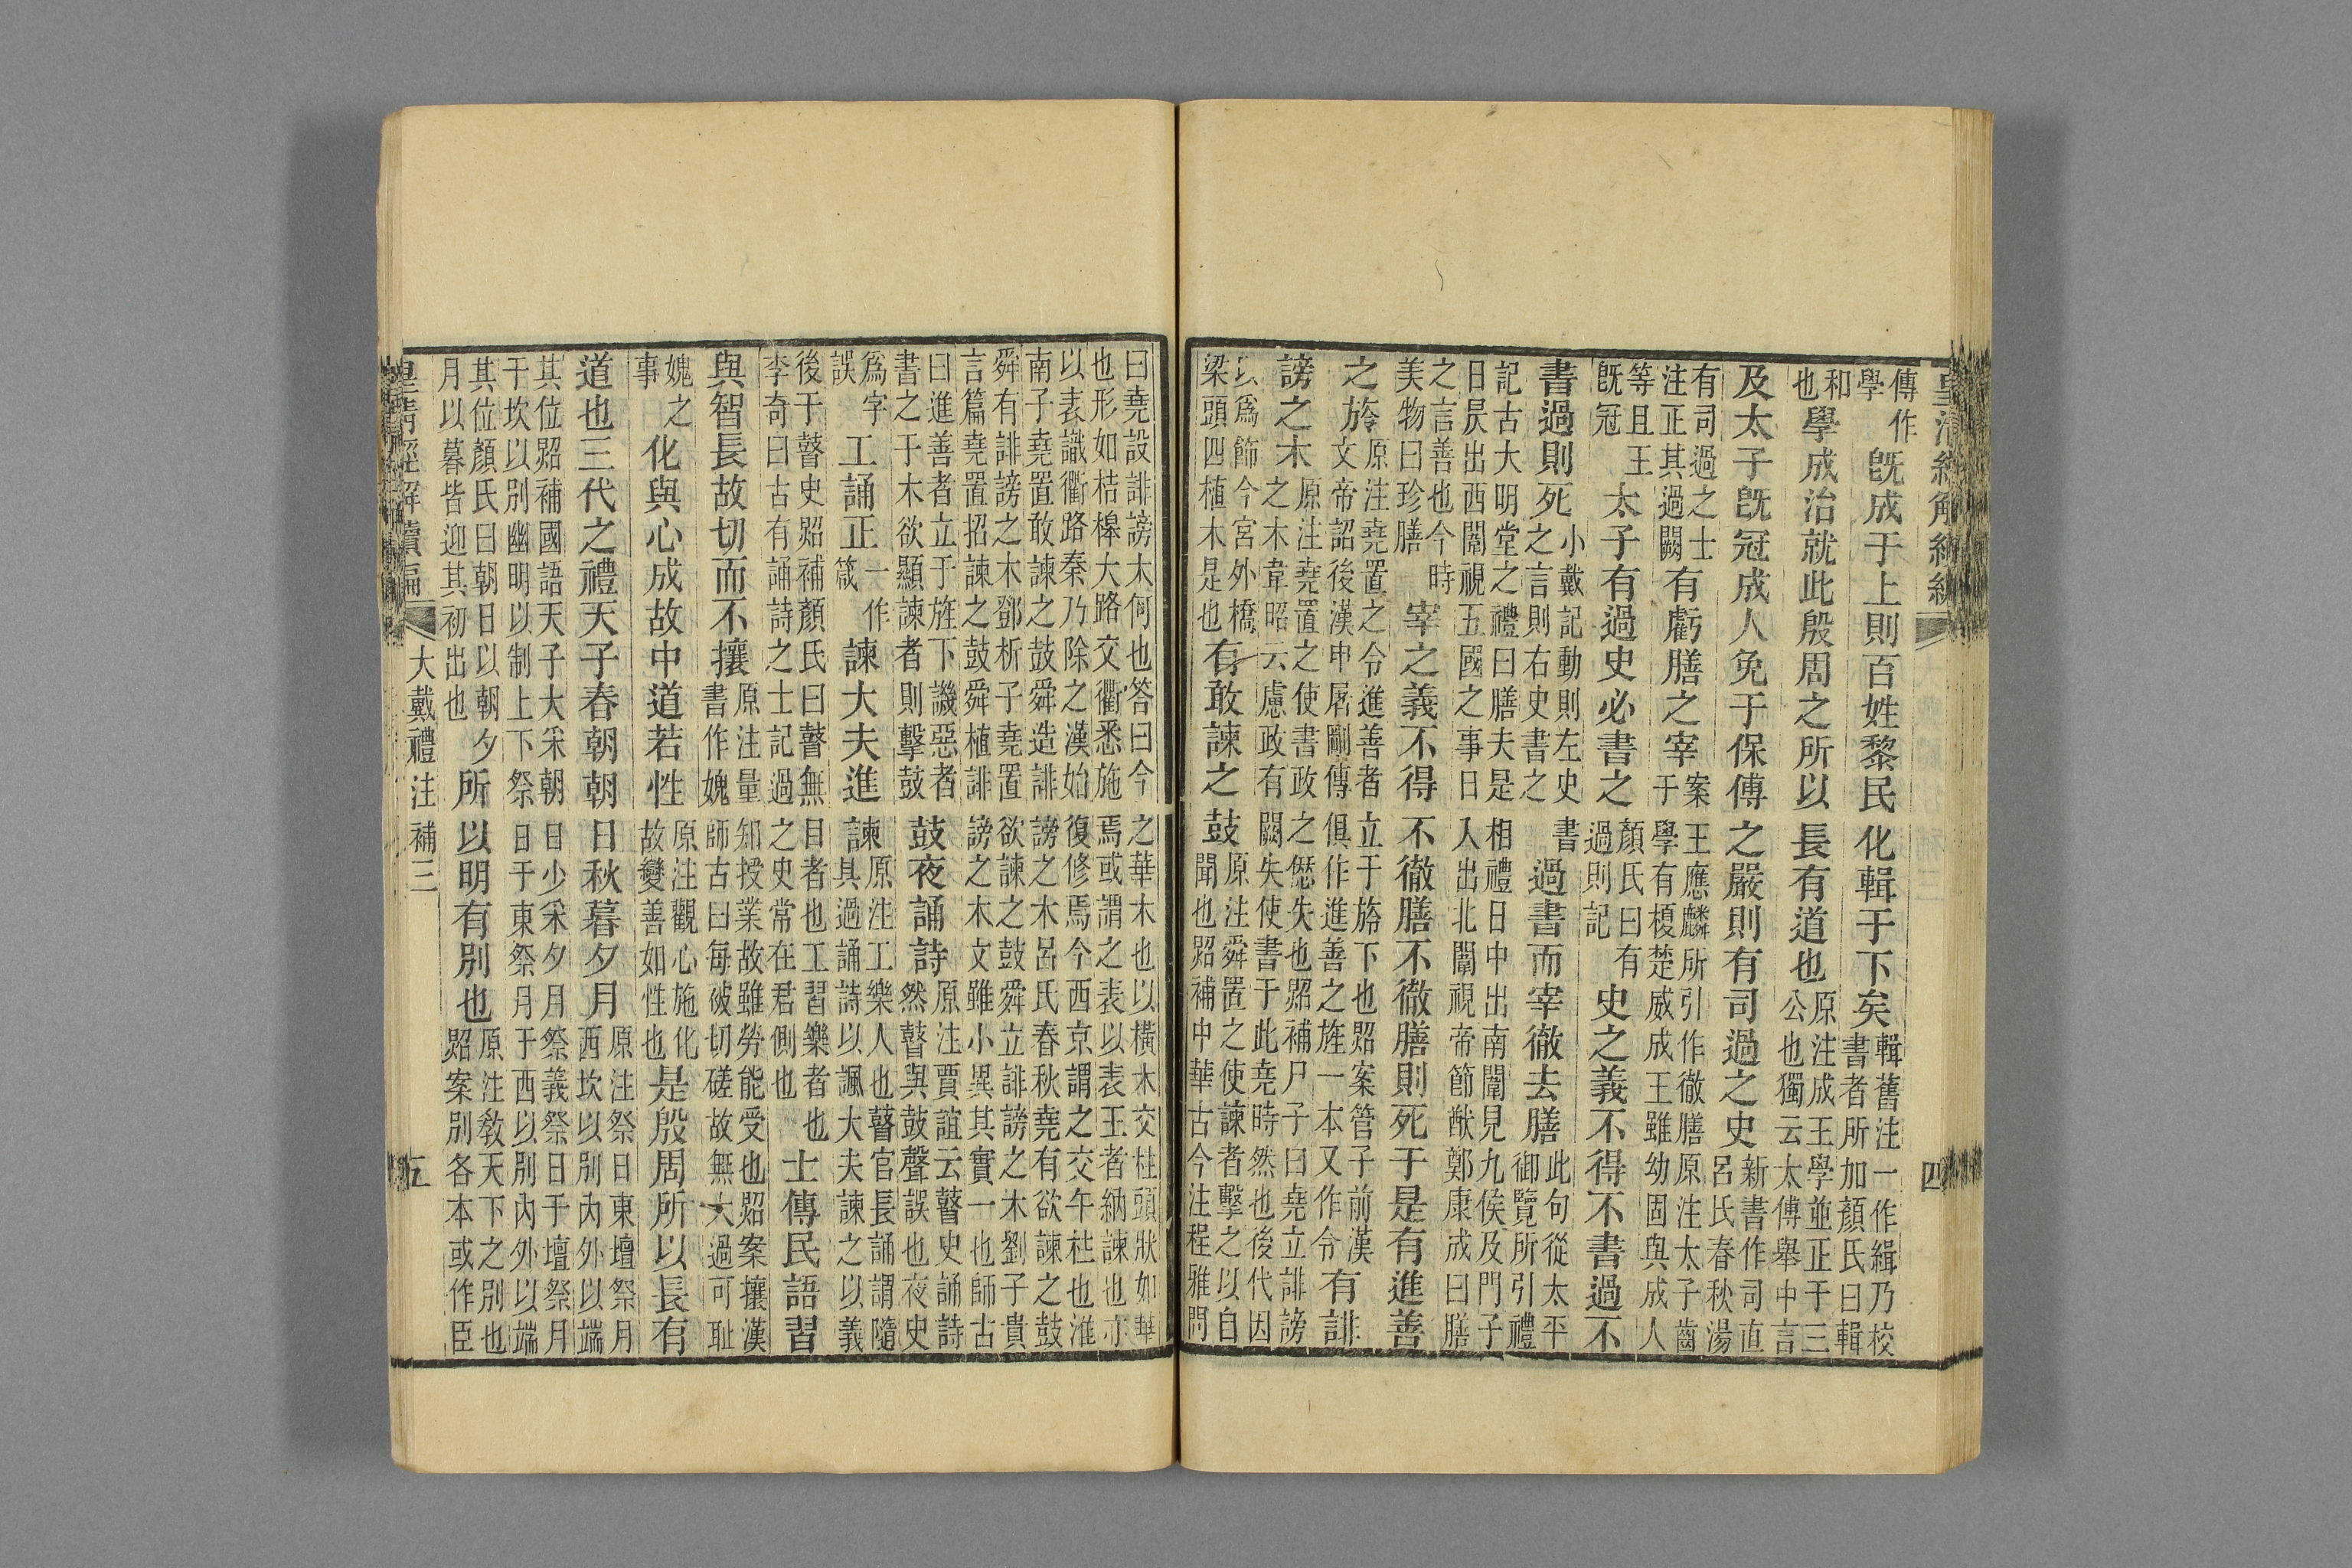 皇清經解續編 四
傳作學既成于上則百姓黎民化輯于下矣輯舊注一作緝乃校書者所加顏氏曰輯
和也學成治就此殷周之所以長有道也原注成王學並正于三公也獨云太傅舉中言
及太子既冠成人免于保傅之嚴則有司過之史新書作司直呂氏春秋湯
有司過之士注正其過闕有虧膳之宰案王應麟所引作徹膳原注太子齒于學有榎楚威成王雖幼固與成人
等且王既冠太子有過史必書之顏氏曰有過則記史之義不得不書過不
書過則死小戴記動則左史書之言則右史書之過書而宰徹去膳此句從太平御覽所引禮
記古大明堂之禮曰膳夫是相禮日中出南闈見九侯及門子日昃出西闈視五國之事日入出北闈視帝節猷鄭康成曰膳
之言善也今時美物曰珍膳宰之義不得不徹膳不徹膳則死于是有進善
之旍原注堯置之令進善者立于旍下也照案管子前漢文帝詔後漢申屠剛傳俱作進善之旌一本又作令有誹
謗之木原注堯置之使書政之愆失也照補尸子曰堯立誹謗之木韋昭云慮政有闕失使書于此堯時然也後代因
以爲飾今宮外橋梁頭四植木是也有敢諫之鼓原注舜置之使諫者擊之以自聞也照補中華古今注程雅問
曰堯設誹謗木何也答曰今之華木也以橫木交柱頭狀如華也形如桔槔大路交衢悉施焉或謂之表以表王者納諫也亦
以表識衢路秦乃除之漢始復修焉今西京謂之交午柱也淮南子堯置敢諫之鼓舜造誹謗之木呂氏春秋堯有欲諫之鼓
舜有誹謗之木鄧析子堯置欲諫之鼓舜立誹謗之木劉子貴言篇堯置招諫之鼓舜植誹謗之木文雖小異其實一也師古
曰進善者立于旌下譏惡者書之于木欲顯諫者則擊鼓鼓夜誦詩原注賈誼云瞽史誦詩然瞽與鼓聲誤也夜史
爲字誤工誦正一作箴諫大夫進諫原注工樂人也瞽官長誦謂隨其過誦詩以諷大夫諫之以義
後于瞽史照補顏氏曰瞽無目者也工習樂者也李奇曰古有誦詩之士記過之史常在君側也士傳民語習
與智長故切而不攘原注量知授業故雖勞能受也照案攘漢書作媿師古曰每被切磋故無大過可恥
媿之事化與心成故中道若性原注觀心施化故變善如性也是殷周所以長有
道也三代之禮天子春朝朝日秋暮夕月原注祭日東壇祭月西坎以別內外以端
其位照補國語天子大采朝日少采夕月祭義祭日于壇祭月于坎以別幽明以制上下祭日于東祭月于西以別內外以端
其位顏氏曰朝日以朝夕月以暮皆迎其初出也所以明有別也原注敎天下之別也照案別各本或作臣
皇清經解續編 大戴禮注補三 五